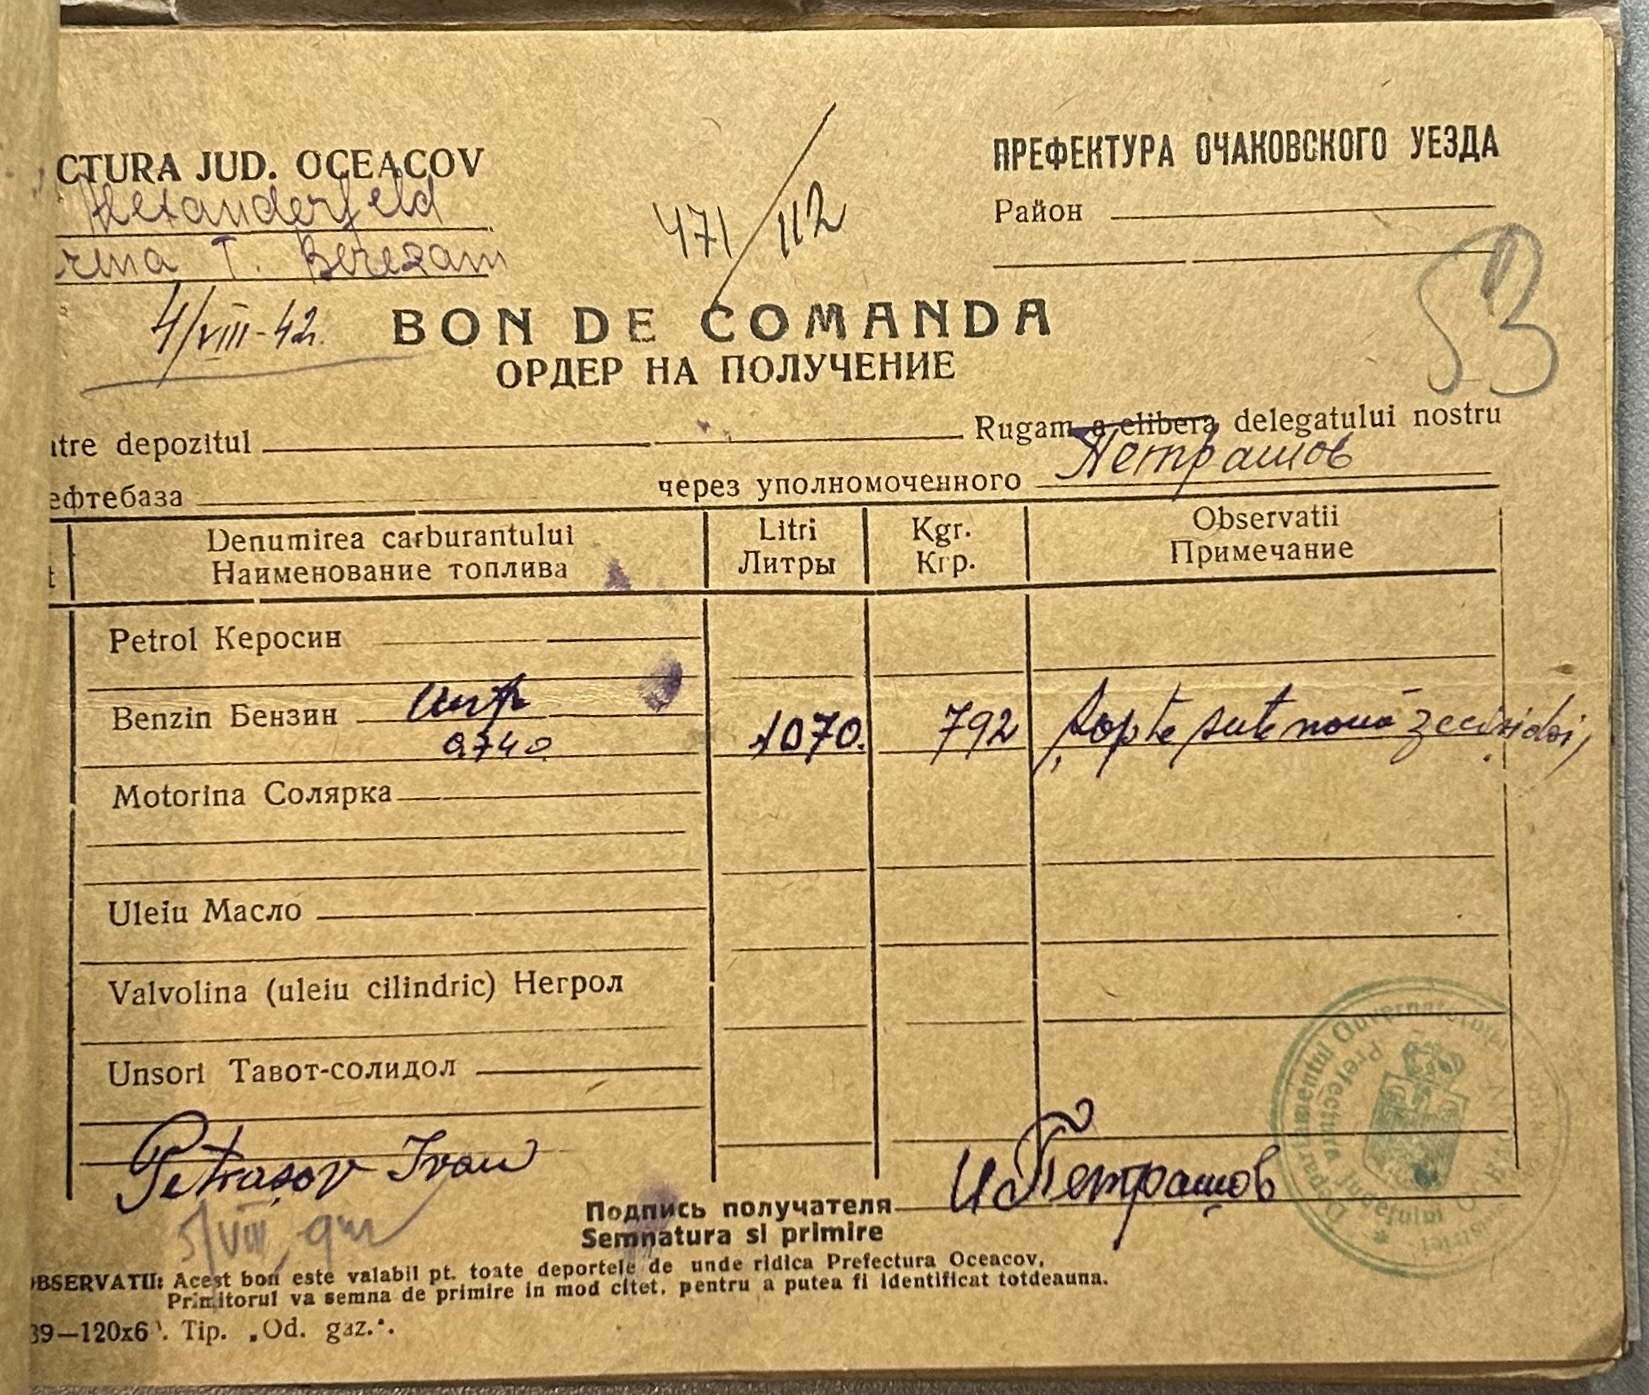 CTURA JUD. OCEACOV
ПРЕФЕКТУРА ОЧАКОВСКОГО УЕЗДА
Alexanderfeld
471/112
Район
rina T. Berezani
53
4/VIII-42.
BON DE COMANDA
ОРДЕР НА ПОЛУЧЕНИЕ
tre depozitul Rugam a elibera delegatului nostru
ефтебаза через уполномоченного Петрашов
Denumirea carburantului Litri Kgr. Observatii
Наименование топлива Литры Кгр. Примечание
Petrol Керосин
Benzin Бензин 1070. 792 șapte sute nouă zeci și doi,
0.740
Motorina Солярка
Uleiu Масло
Valvolina (uleiu cilindric) Негрол
Unsori Тавот-солидол
Petrașov Ivan
И Петрашов
Подпись получателя
Semnatura si primire
5/VIII
BSERVATII: Acest bon este valabil pt. toate deportele de unde ridica Prefectura Oceacov,
Primitorul va semna de primire in mod citet, pentru a putea fi identificat totdeauna.
39—120x6 . Tip. „Od. gaz.".
Departamentul Guvernatorului
Prefectura Județului